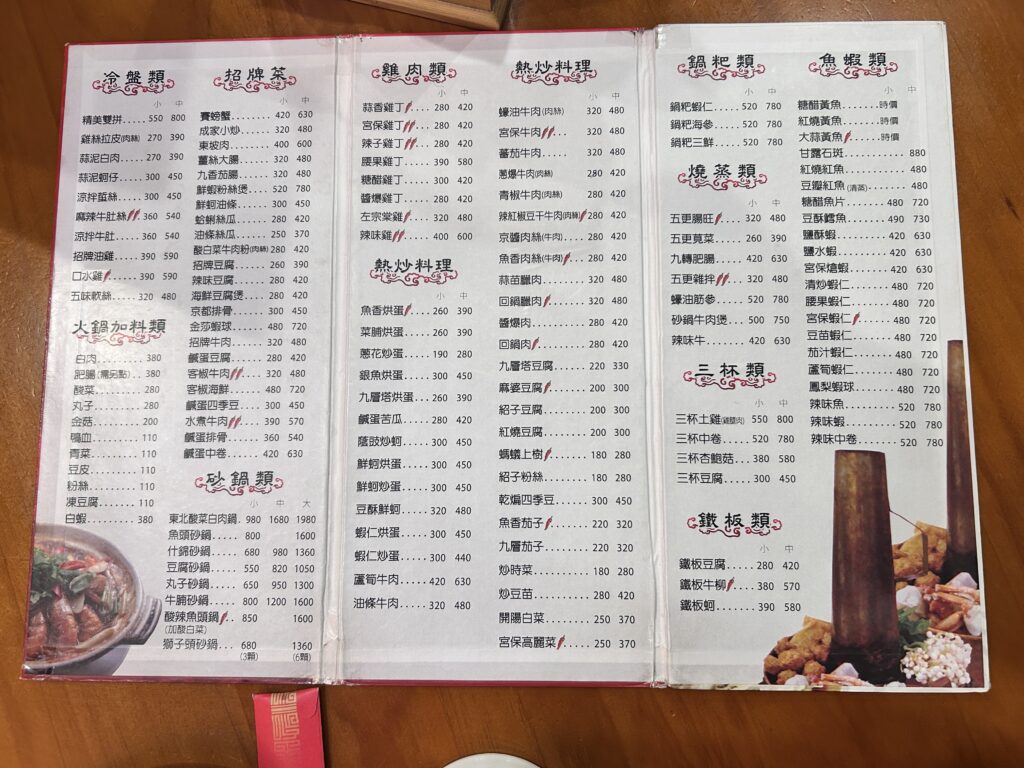 冷盤類
小 中
精美雙拼.... 550 800
雞絲拉皮(肉絲) 270 390
蒜泥白肉..... 270 390
蒜泥蚵仔..... 300 450
涼拌蜇絲..... 300 450
麻辣牛肚絲 360 540
涼拌牛肚.... 360 540
招牌油雞.... 390 590
口水雞..... 390 590
五味軟絲..... 320 480
火鍋加料類
白肉........ 380
肥腸(需另點).. 380
酸菜........ 280
丸子........ 280
金菇........ 200
鴨血........ 110
青菜........ 110
豆皮........ 110
粉絲........ 110
凍豆腐....... 110
白蝦........ 380
招牌菜
小 中
賽螃蟹....... 420 630
成家小炒..... 320 480
東坡肉....... 400 600
薑絲大腸..... 320 480
九香茄腸..... 320 480
鮮蝦粉絲煲... 520 780
鮮蚵油條..... 300 450
蛤蜊絲瓜..... 280 420
油條絲瓜..... 250 370
酸白菜牛肉粉(肉絲) 280 420
招牌豆腐..... 260 390
辣味豆腐..... 280 420
海鮮豆腐煲... 280 420
京都排骨..... 300 450
金莎蝦球..... 480 720
招牌牛肉..... 320 480
鹹蛋豆腐..... 280 420
客椒牛肉... 320 480
客椒海鮮..... 480 720
鹹蛋四季豆... 300 450
水煮牛肉... 390 570
鹹蛋排骨..... 360 540
鹹蛋中卷..... 420 630
砂鍋類
小 中 大
東北酸菜白肉鍋. 980 1680 1980
魚頭砂鍋.... 800 1600
什錦砂鍋.... 680 980 1360
豆腐砂鍋.... 550 820 1050
丸子砂鍋.... 650 950 1300
牛腩砂鍋.... 800 1200 1600
酸辣魚頭鍋.. 850 1600
(加酸白菜)
獅子頭砂鍋... 680 1360
(3顆) (6顆)
雞肉類
小 中
蒜香雞丁.... 280 420
宮保雞丁... 280 420
辣子雞丁... 280 420
腰果雞丁..... 390 580
糖醋雞丁..... 300 450
醬爆雞丁..... 280 420
左宗棠雞... 320 480
辣味雞.... 400 600
熱炒料理
小 中
魚香烘蛋... 260 390
菜脯烘蛋..... 260 390
蔥花炒蛋..... 190 280
銀魚烘蛋..... 300 450
九層塔烘蛋... 260 390
鹹蛋苦瓜..... 280 420
蔭豉炒蚵..... 300 450
鮮蚵烘蛋..... 300 450
鮮蚵炒蛋..... 300 450
豆酥鮮蚵..... 320 480
蝦仁烘蛋..... 300 450
蝦仁炒蛋..... 300 440
蘆筍牛肉..... 420 630
油條牛肉..... 320 480
熱炒料理
小 中
蠔油牛肉(肉絲) 320 480
宮保牛肉... 320 480
蕃茄牛肉..... 320 480
蔥爆牛肉(肉絲) 280 420
青椒牛肉(肉絲) 280 420
辣紅椒豆干牛肉(肉絲) 280 420
京醬肉絲(牛肉). 280 420
魚香肉絲(牛肉) 280 420
蒜苗臘肉..... 320 480
回鍋臘肉.... 320 480
醬爆肉....... 280 420
回鍋肉...... 280 420
九層塔豆腐... 220 330
麻婆豆腐.... 200 300
紹子豆腐..... 200 300
紅燒豆腐..... 200 300
螞蟻上樹.... 180 280
紹子粉絲..... 180 280
乾煸四季豆... 300 450
魚香茄子.... 220 320
九層茄子..... 220 320
炒時菜....... 180 280
炒豆苗....... 280 420
開陽白菜..... 250 370
宮保高麗菜.. 250 370
鍋粑類
小 中
鍋粑蝦仁..... 520 780
鍋粑海參..... 520 780
鍋粑三鮮..... 520 780
燒蒸類
小 中
五更腸旺... 320 480
五更莧菜..... 260 390
九轉肥腸..... 420 630
五更雞拌... 320 480
蠔油筋參..... 520 780
砂鍋牛肉煲... 500 750
辣味牛....... 420 630
三杯類
小 中
三杯土雞(雞腿肉) 550 800
三杯中卷..... 520 780
三杯杏鮑菇... 380 580
三杯豆腐..... 300 450
鐵板類
小 中
鐵板豆腐..... 280 420
鐵板牛柳... 380 570
鐵板蚵....... 390 580
魚蝦類
小 中
糖醋黃魚....... 時價
紅燒黃魚....... 時價
大蒜黃魚..... 時價
甘露石斑....... 880
紅燒紅魚....... 480
豆瓣紅魚(清蒸).. 480
糖醋魚片..... 480 720
豆酥鱈魚..... 490 730
鹽酥蝦....... 430 640
鹽水蝦....... 430 640
宮保熗蝦..... 430 640
清炒蝦仁..... 480 720
腰果蝦仁..... 480 720
宮保蝦仁... 480 720
豆苗蝦仁..... 480 720
茄汁蝦仁..... 480 720
蘆筍蝦仁..... 480 720
鳳梨蝦球..... 480 720
辣味魚....... 520 780
辣味蝦....... 520 780
辣味中卷..... 520 780